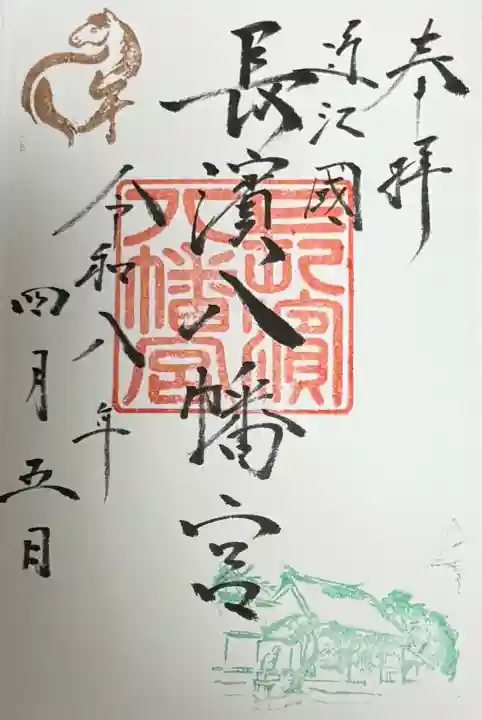 奉拝
近江國
長濱八幡宮
長濱八幡宮
令和八年
四月五日
午